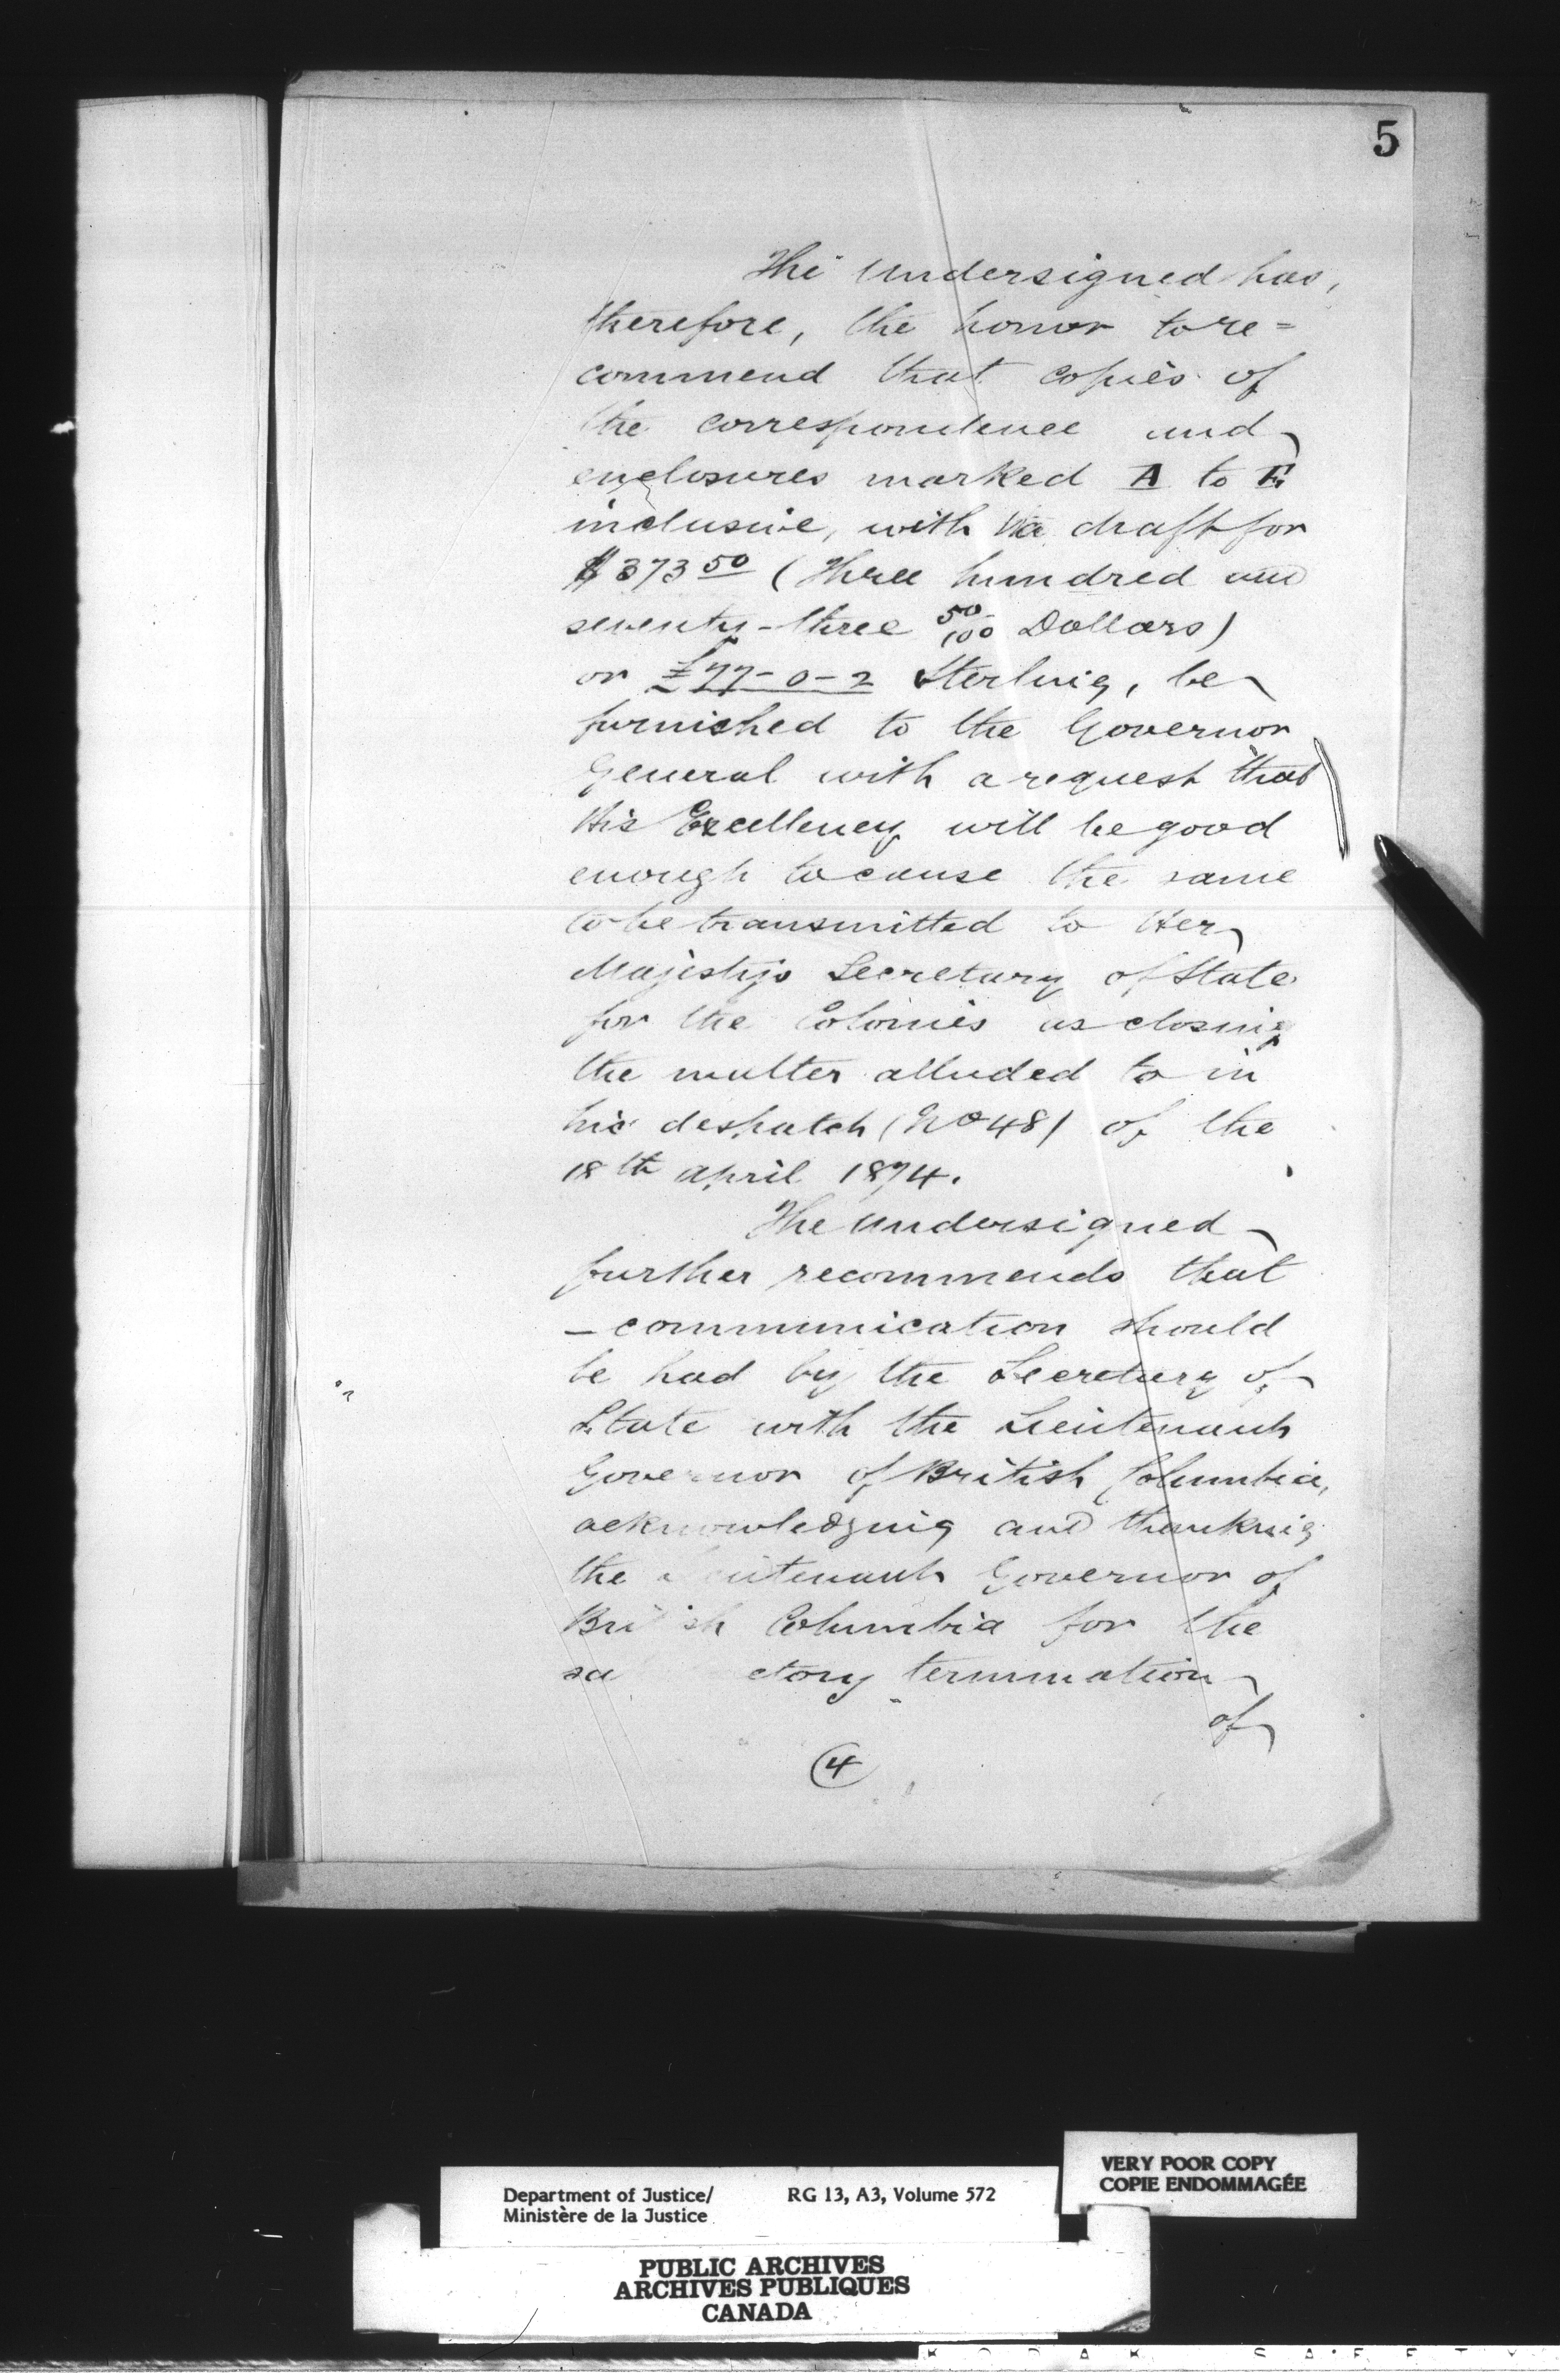 5
The Undersigned has,
therefore, the honor to re=
commend that copies of
the correspondence and
enclosures marked A to E
inclusive, with a draft for
$373 50 (Three hundred and
seventy-three 50/100 Dollars)
or £77-0-2 Sterling, be
furnished to the Governor
General with a request that
His Excellency will be good
enough to cause the same
to be transmitted to Her
Majestys Secretary of State
for the Colonies as closing
the matter alluded to in
his despatch (No 48) of the
18th April 1874.
The Undersigned
further recommends that
- communication should
be had by the Secretary of
State with the Lieutenant
Governor of British Columbia,
acknowledging and thanking
the Lieutenant Governor of
British Columbia for the
sa ctory termination
of
4
VERY POOR COPY
COPIE ENDOMMAGÉE
Department of Justice/ RG 13, A3, Volume 572
Ministère de la Justice
PUBLIC ARCHIVES
ARCHIVES PUBLIQUES
CANADA
K O D A K S A F E T Y